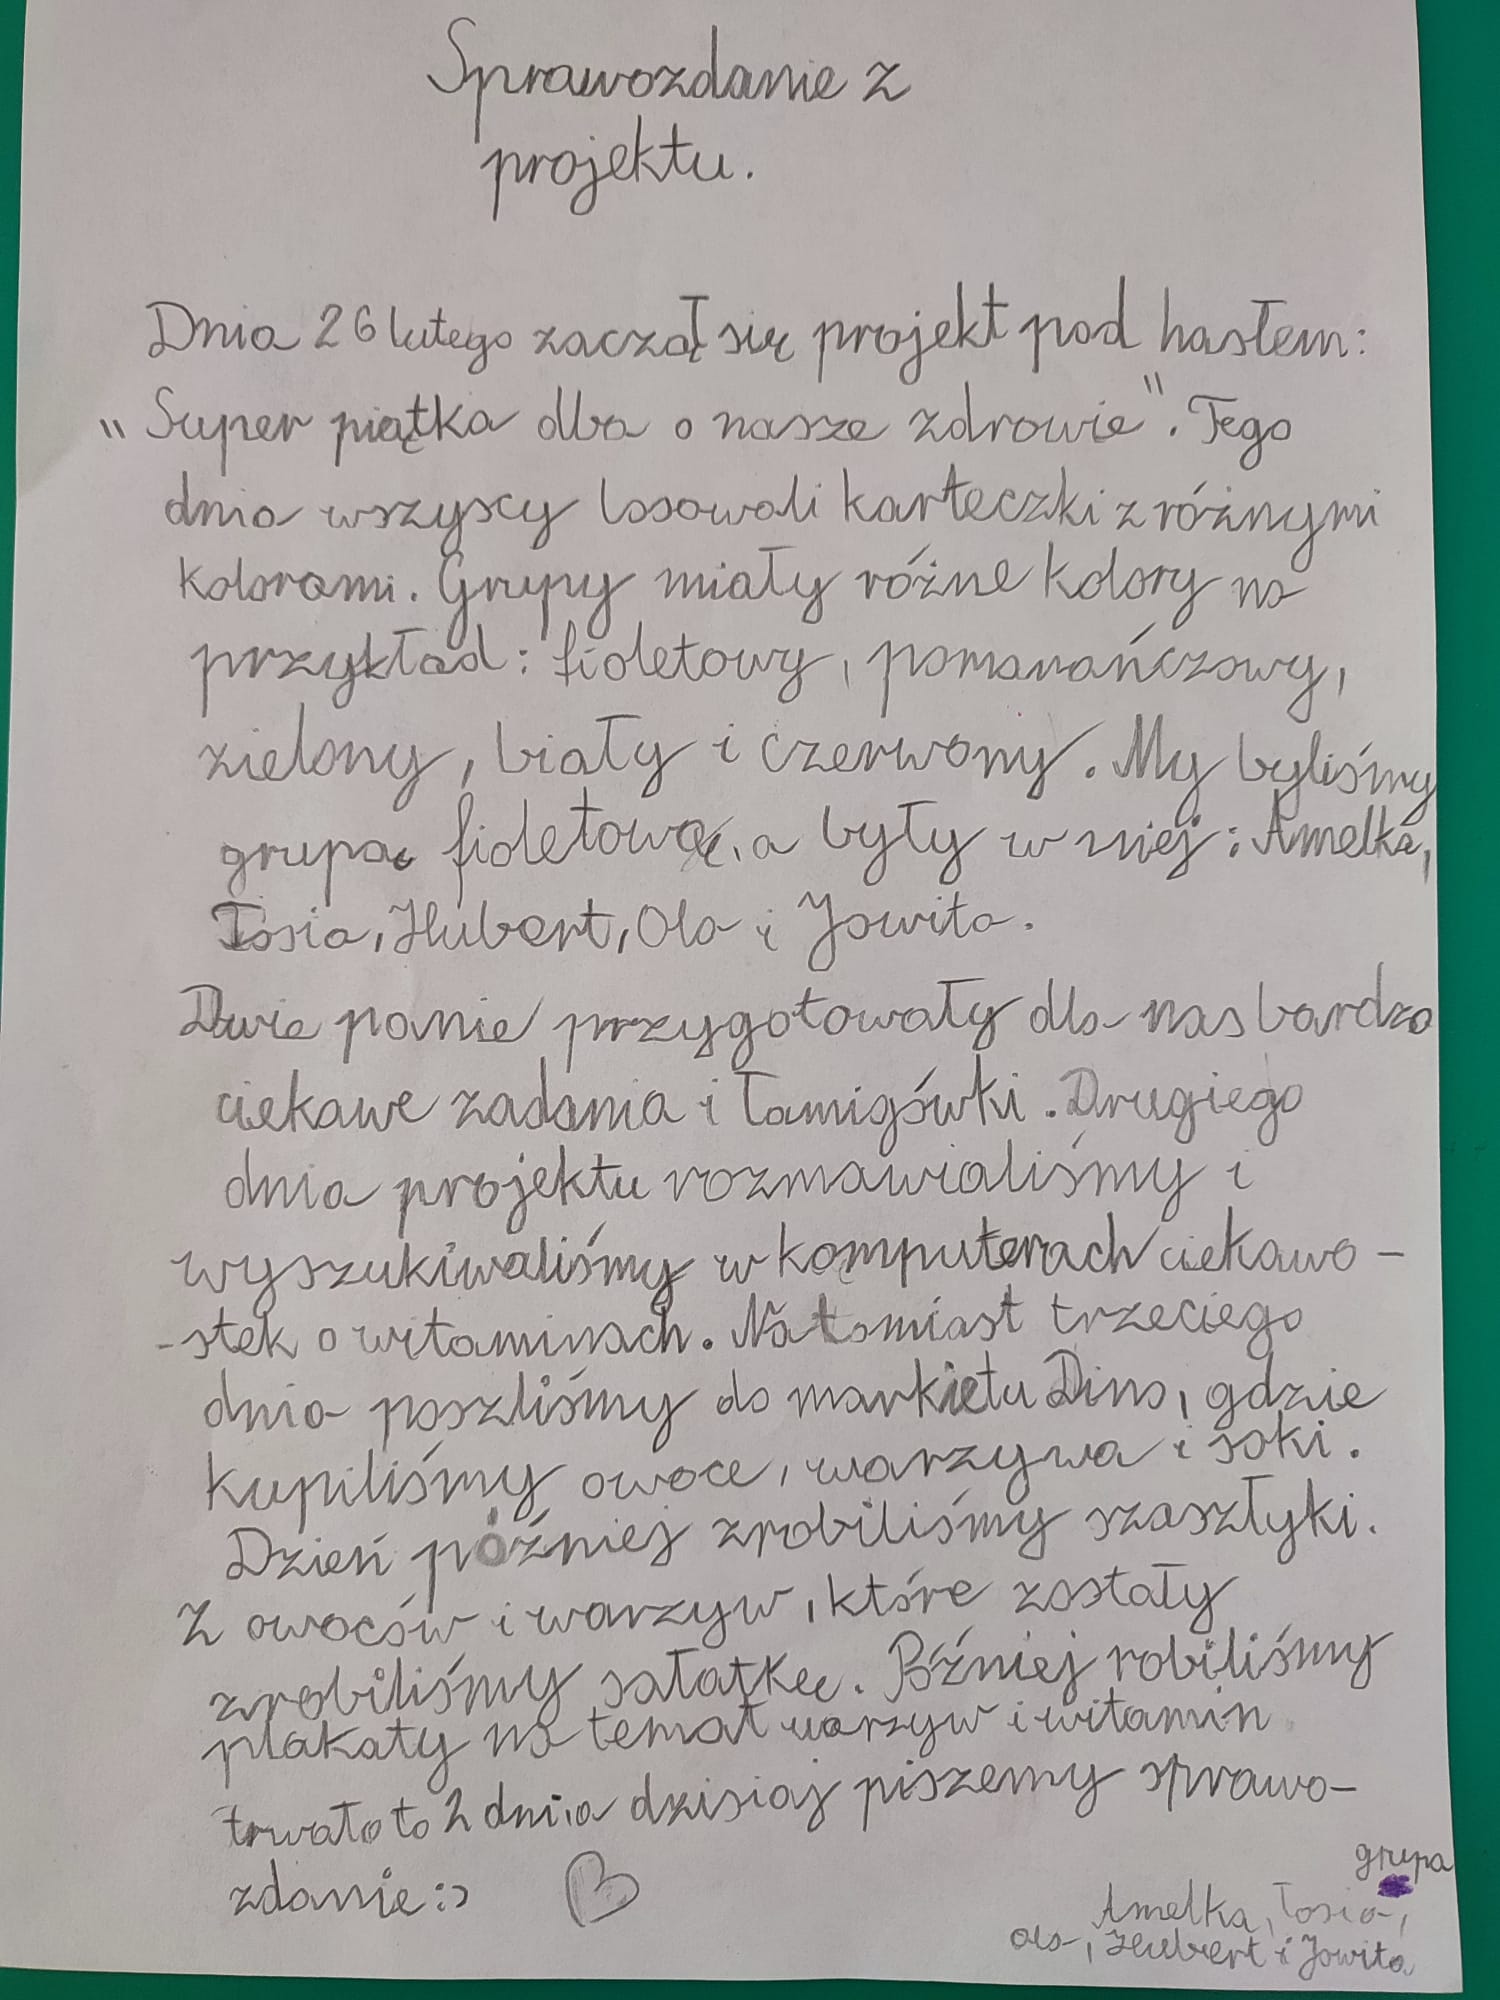 Sprawozdanie z
projektu.
Dnia 26 lutego zaczął się projekt pod hasłem:
"Super piątka dba o nasze zdrowie". Tego
dnia wszyscy losowali karteczki z różnymi
kolorami. Grupy miały różne kolory na
przykład: fioletowy, pomarańczowy,
zielony, biały i czerwony. My byliśmy
grupą fioletową, a były w niej: Amelka,
Tosia, Hubert, Ola i Jowita.
Dwie panie przygotowały dla nas bardzo
ciekawe zadania i łamigówki. Drugiego
dnia projektu rozmawialiśmy i
wyszukiwaliśmy w komputerach ciekawo-
-stek o witaminach. Natomiast trzeciego
dnia poszliśmy do markietu Dino, gdzie
kupiliśmy owoce, warzywa i soki.
Dzień później zrobiliśmy szasztyki.
Z owoców i warzyw, które zostały
zrobiliśmy sałatkę. Później robiliśmy
plakaty na temat warzyw i witamin
trwało to 2 dnia dzisiaj piszemy sprawo-
zdanie :)
grupa
Amelka, Tosia,
Ola, Hubert i Jowita